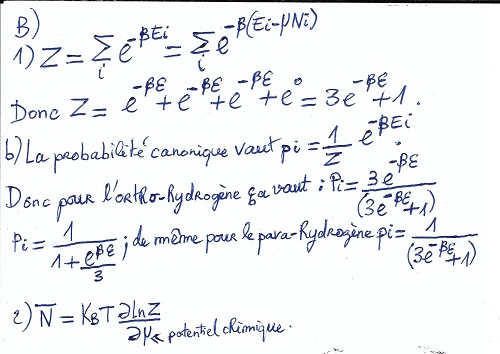 B)
1) Z = Σ_i e^{-βEi} = Σ_i e^{-β(Ei-μNi)}
Donc Z = e^{-βε} + e^{-βε} + e^{-βε} + e^0 = 3e^{-βε} + 1.
b) La probabilité canonique vaut pi = 1/Z e^{-βEi}.
Donc pour l'ortho-hydrogène ça vaut : Pi = 3e^{-βε}/(3e^{-βε}+1)
Pi = 1/(1 + e^{βε}/3) ; de même pour le para-hydrogène pi = 1/(3e^{-βε}+1)
2) N̅ = K_B T ∂LnZ/∂μ ← potentiel chimique.